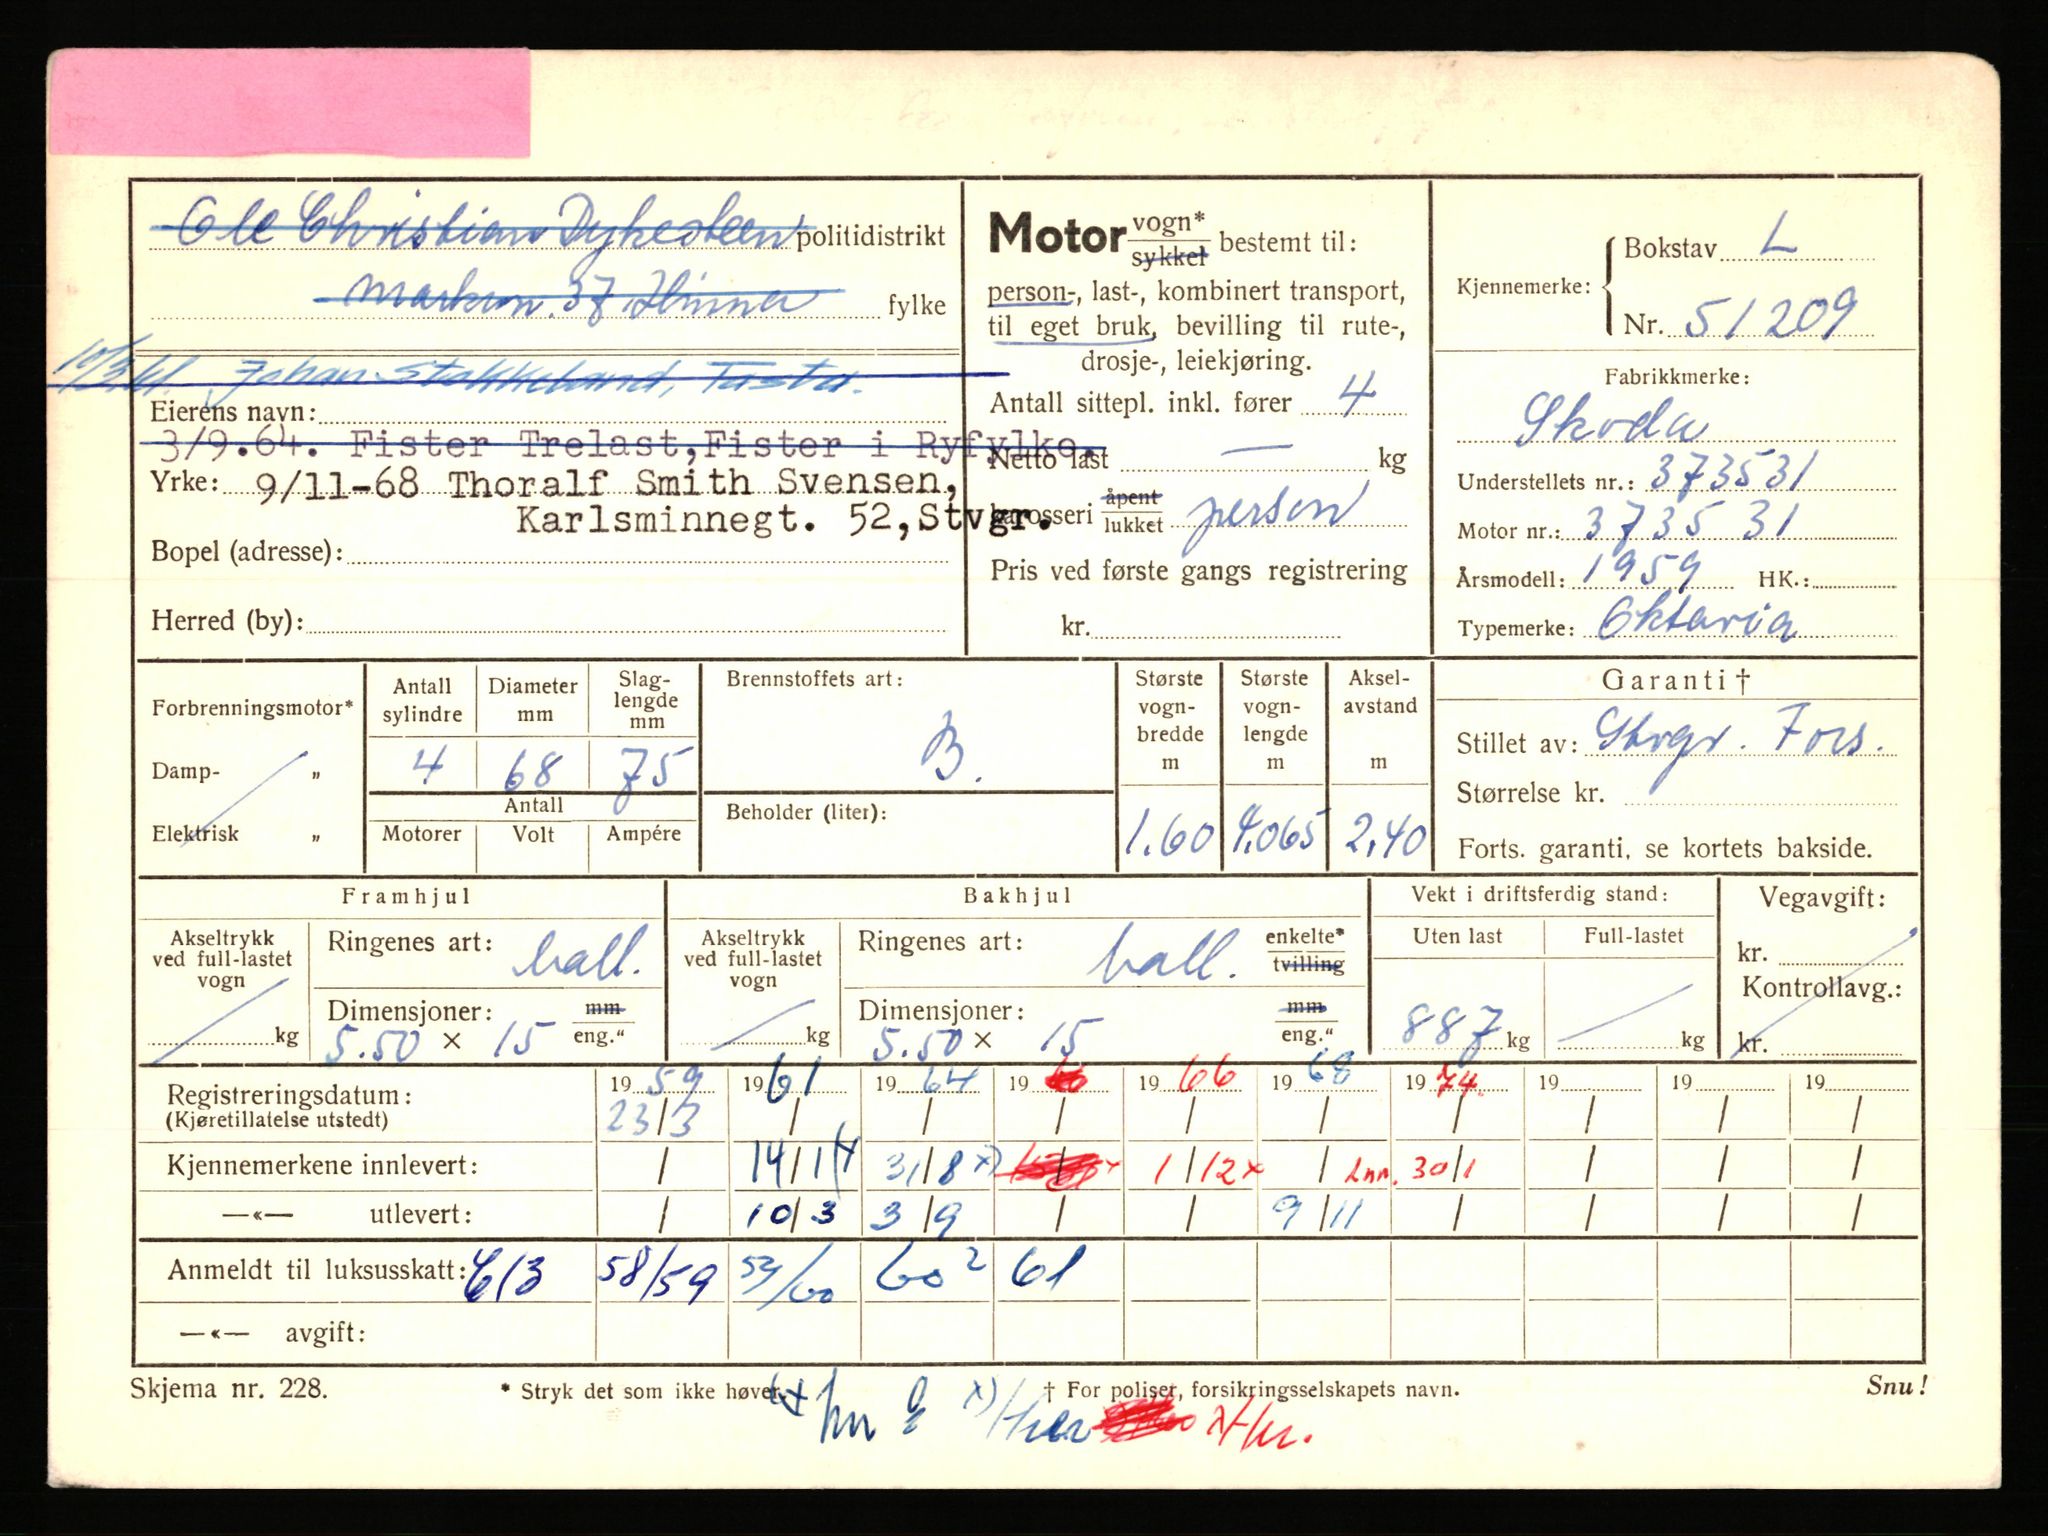 Ole Christian Dykesteen politidistrikt
Markvn. 37 Hinna fylke
10/3 61. Johan Stokkeland, Tasta.
Eierens navn:
3/9.64. Fister Trelast, Fister i Ryfylke.
Yrke: 9/11-68 Thoralf Smith Svensen,
Karlsminnegt. 52, Stvgr.
Bopel (adresse):
Herred (by):
Motor vogn* sykkel bestemt til:
person-, last-, kombinert transport,
til eget bruk, bevilling til rute-,
drosje-, leiekjøring.
Antall sittepl. inkl. fører 4
Netto last — kg
karosseri åpent lukket person
Pris ved første gangs registrering
kr.
Kjennemerke: Bokstav L
Nr. 51209
Fabrikkmerke:
Skoda
Understellets nr.: 373531
Motor nr.: 373531
Årsmodell: 1959 HK.:
Typemerke: Oktavia
Forbrenningsmotor*
Damp- „
Elektrisk „
Antall sylindre Diameter mm Slag-lengde mm
4 68 75
Antall
Motorer Volt Ampére
Brennstoffets art:
B.
Beholder (liter):
Største vogn-bredde m Største vogn-lengde m Aksel-avstand m
1.60 4.065 2.40
Garanti †
Stillet av: Stvgr. Fors.
Størrelse kr.
Forts. garanti, se kortets bakside.
Framhjul
Akseltrykk ved full-lastet vogn kg
Ringenes art: ball.
Dimensjoner: mm
5.50 × 15 eng."
Bakhjul
Akseltrykk ved full-lastet vogn kg
Ringenes art: ball. enkelte* tvilling
Dimensjoner: mm
5.50 × 15 eng."
Vekt i driftsferdig stand:
Uten last Full-lastet
887 kg kg
Vegavgift:
kr.
Kontrollavg.:
kr.
Registreringsdatum: 19 59 19 61 19 64 19 19 66 19 68 19 74. 19 19 19
(Kjøretillatelse utstedt) 23/3 / / / / / / / / /
Kjennemerkene innlevert: / 14/1 31/8 x) 1/12 x / Inn. 30/1 / / /
—«— utlevert: / 10/3 3/9 / / 9/11 / / / /
Anmeldt til luksusskatt: 58/59 59/60 60 2 61
—«— avgift:
Skjema nr. 228.
* Stryk det som ikke høver.
† For poliser, forsikringsselskapets navn.
Snu!